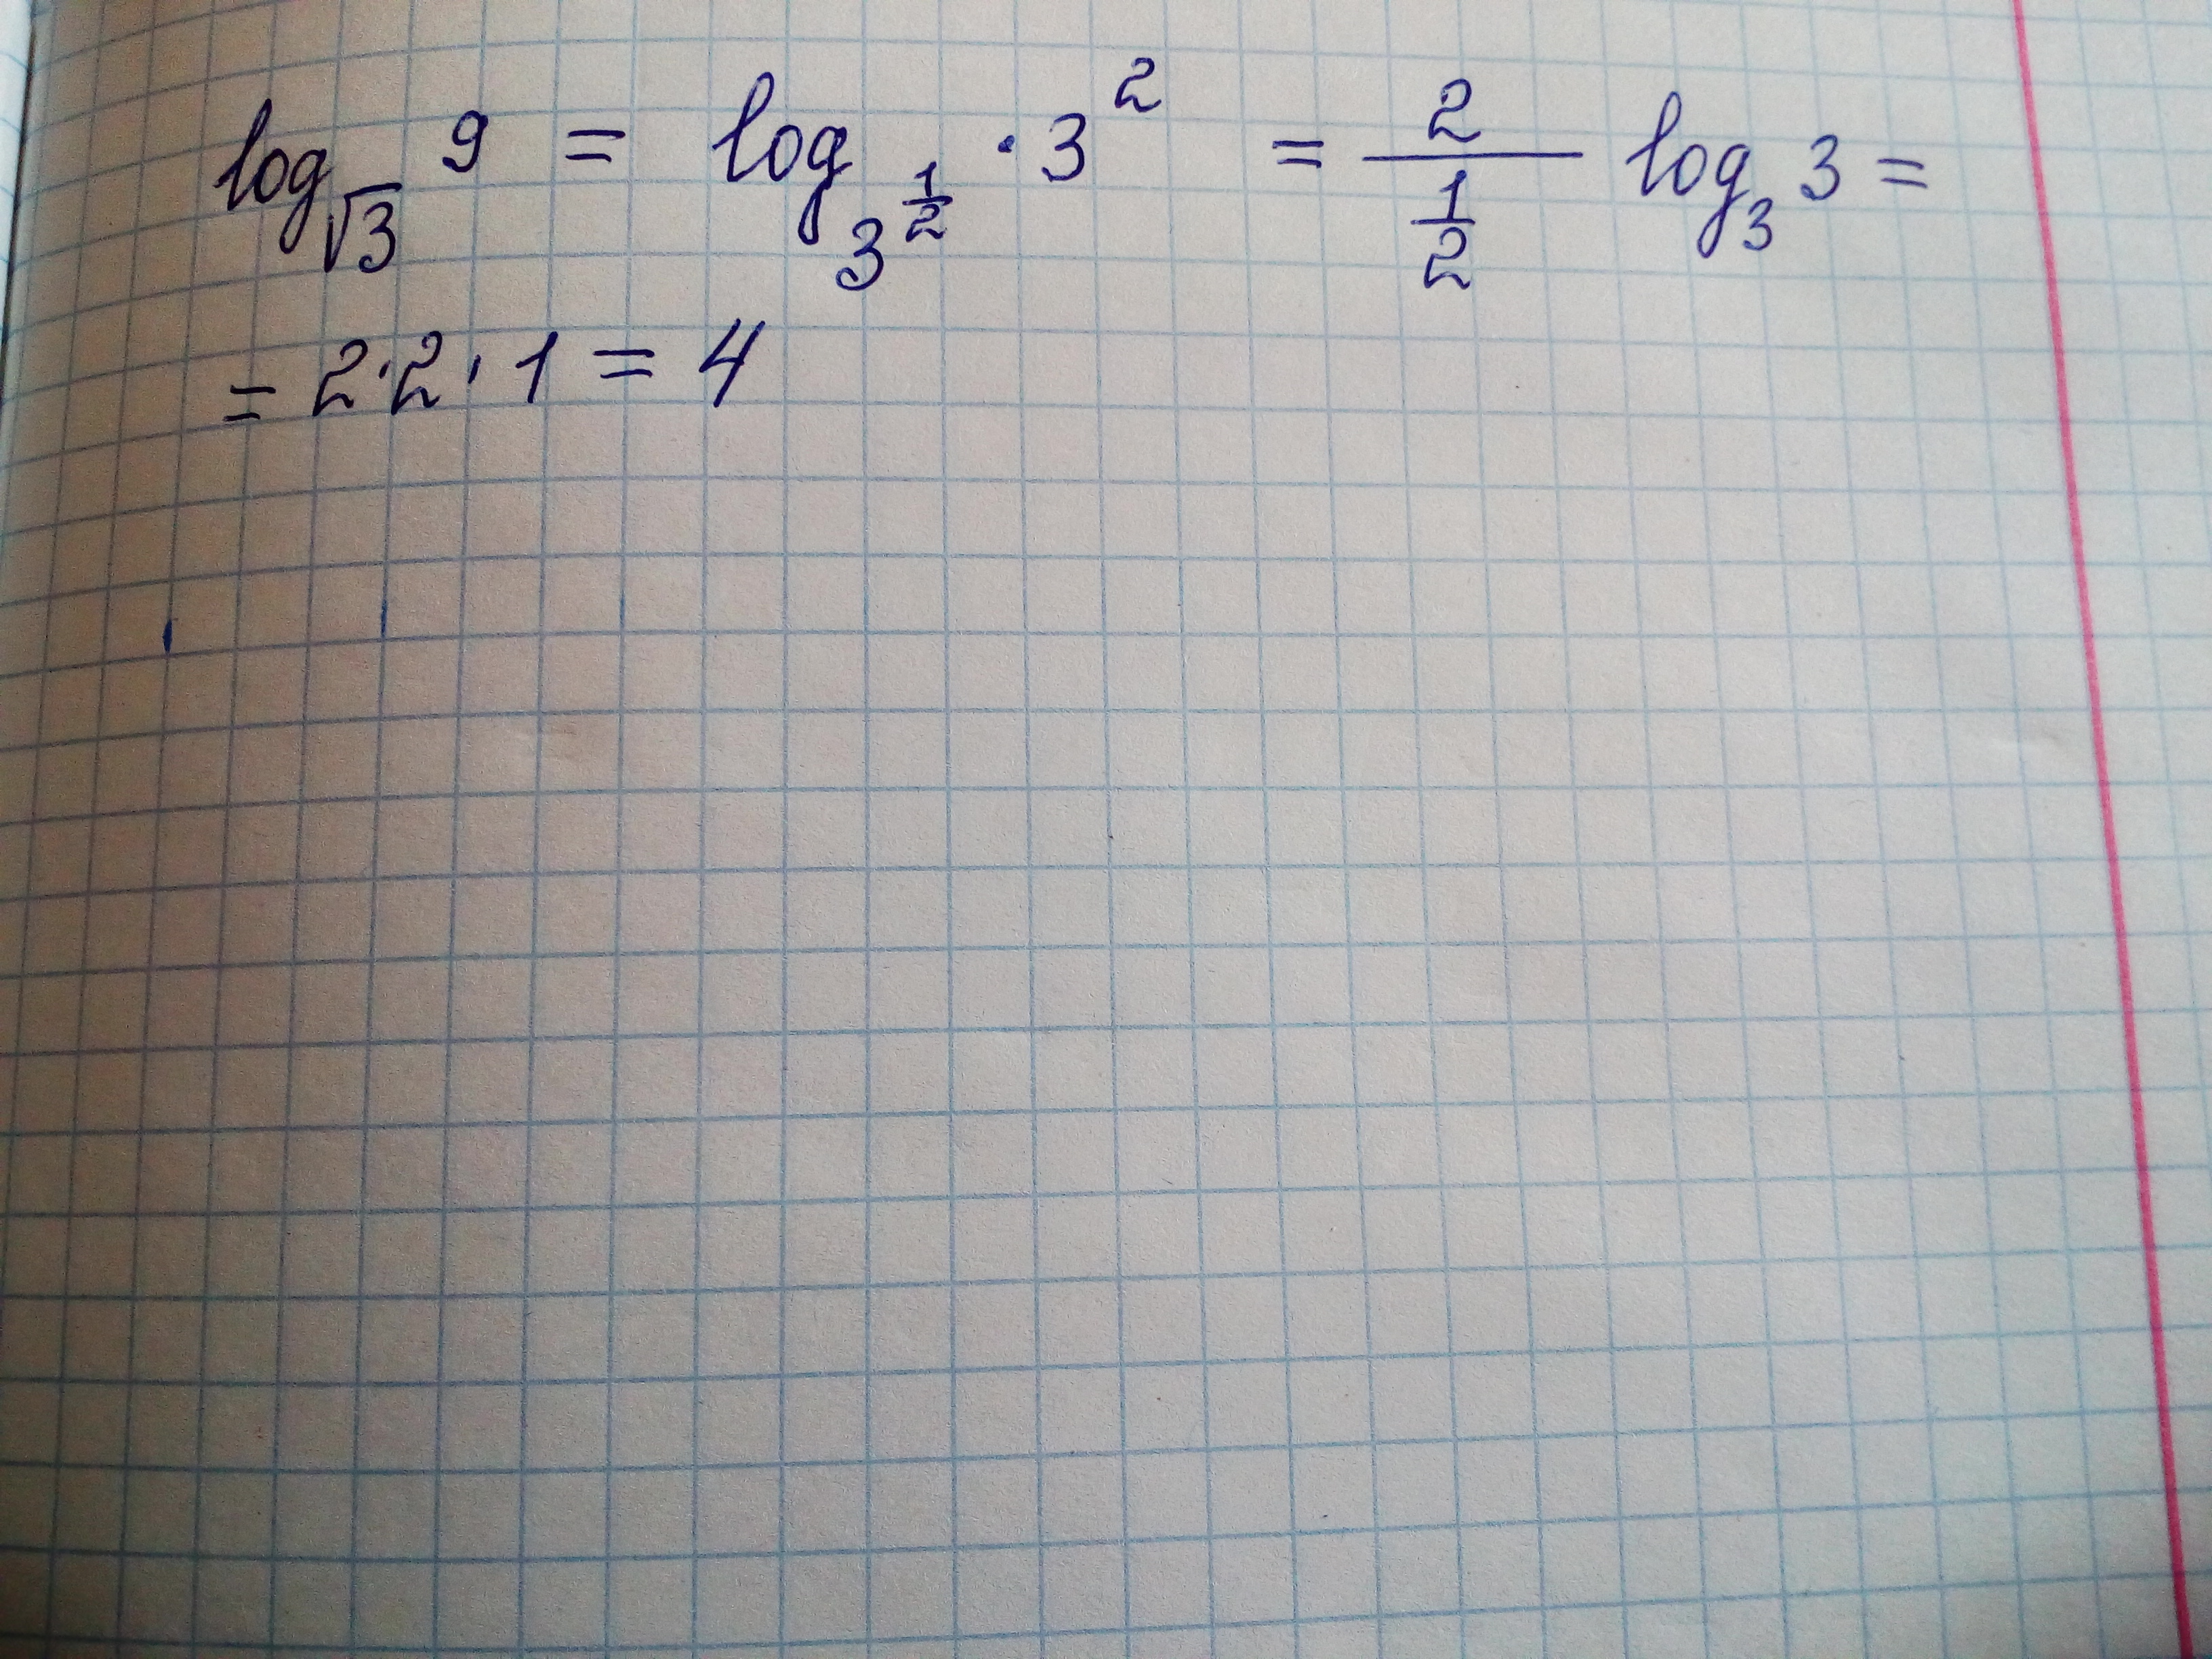 log_{√3} 9 = log_{3^{1/2}} · 3^2 = \frac{2}{\frac{1}{2}} log_3 3 =
= 2 · 2 · 1 = 4